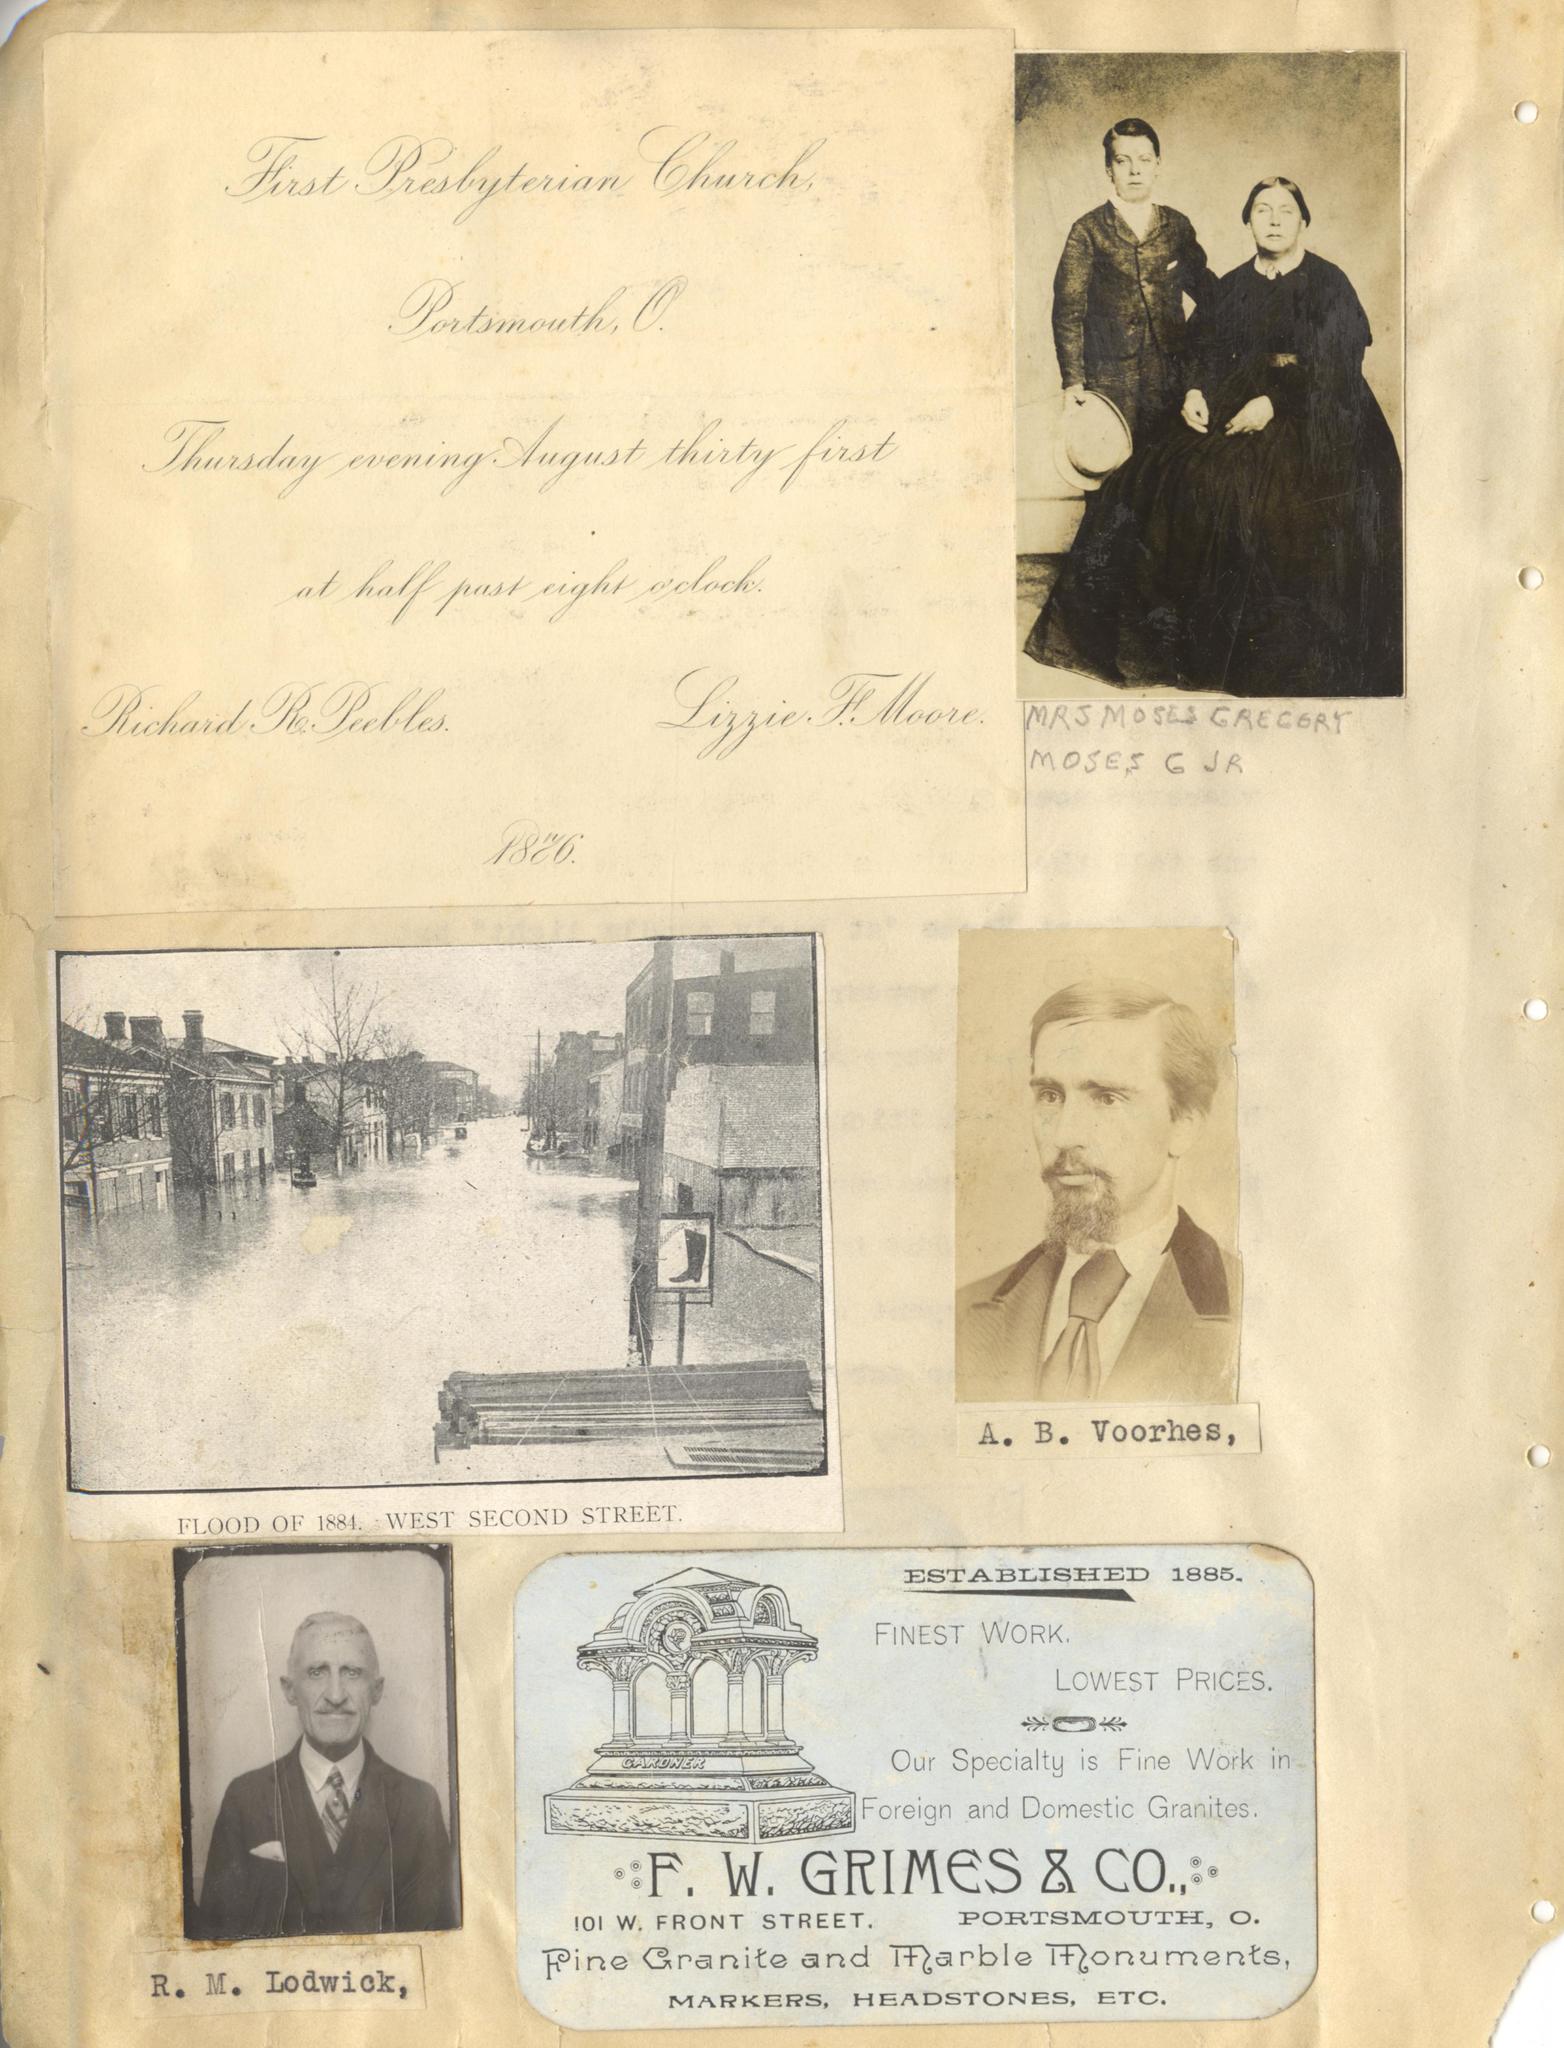 First Presbyterian Church,
Portsmouth, O.
Thursday evening August thirty first
at half past eight o'clock.
Richard R. Peebles.
Lizzie F. Moore.
1876.
MRS MOSES GREGORY
MOSES G JR
FLOOD OF 1884. WEST SECOND STREET.
A. B. Voorhes,
R. M. Lodwick,
ESTABLISHED 1885.
FINEST WORK.
LOWEST PRICES.
GARDNER
Our Specialty is Fine Work in
Foreign and Domestic Granites.
F. W. GRIMES & CO.,
101 W. FRONT STREET. PORTSMOUTH, O.
Fine Granite and Marble Monuments,
MARKERS, HEADSTONES, ETC.